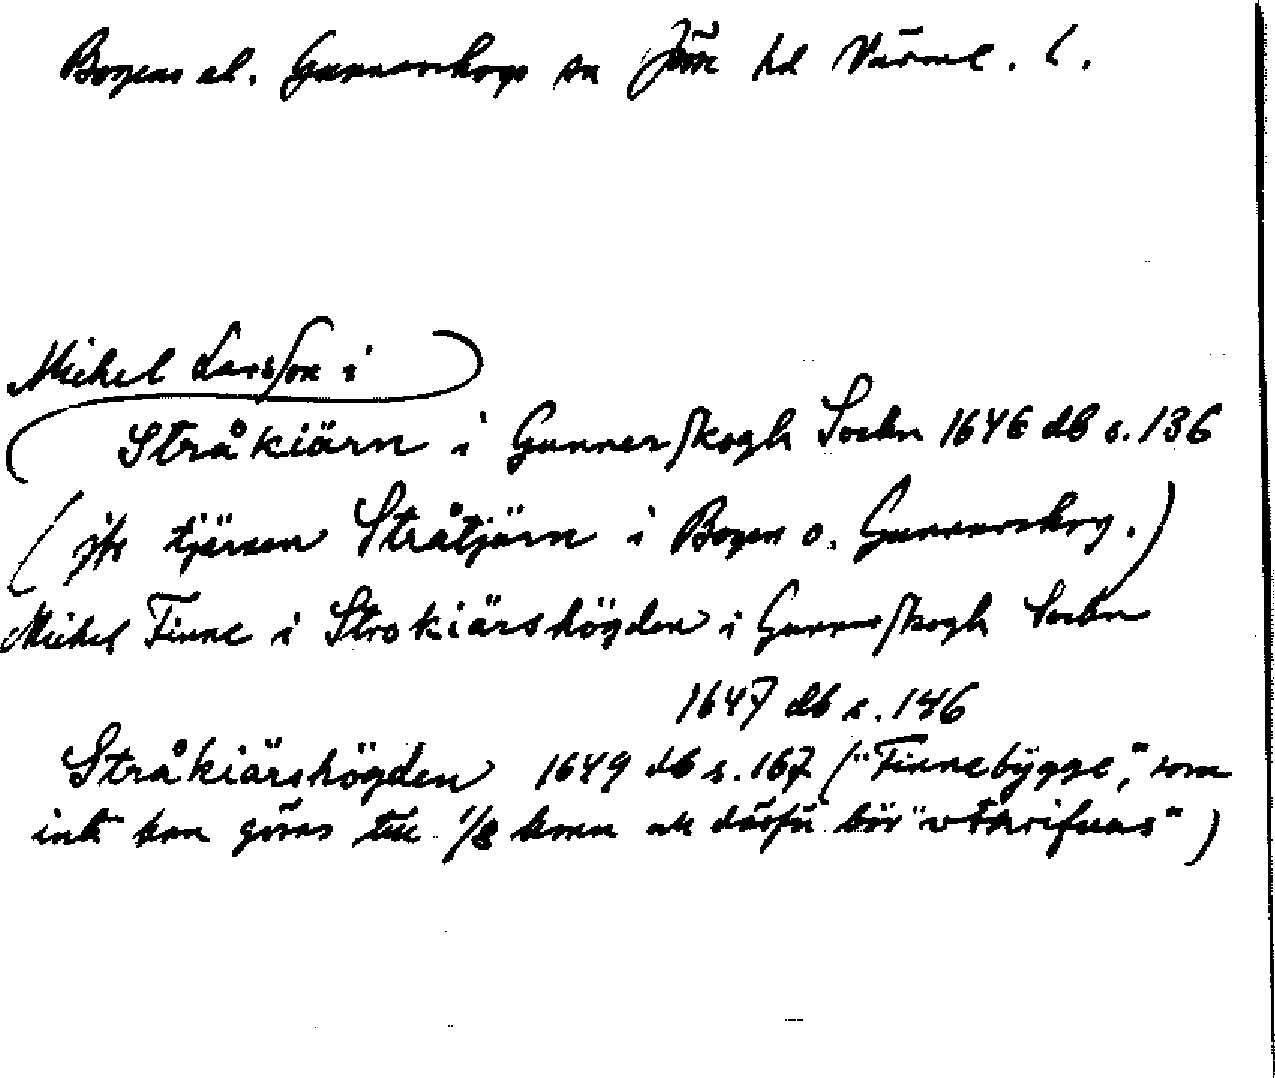 Bogens el. Gunnarskogs sn Jösse hd Värml. l.
Michel Larsson i
Stråkiärn i Gunnerskogh Sockn 1646 db s. 136
(jfr tjärnen Stråtjärn i Bogen o. Gunnarskog.)
Michel Finne i Strokiärshögden i Gunnerskogh Sockn
1647 db s. 146
Stråkiärshögden 1649 db s. 167 ("Finnebygge", som
inte kan göras till 1/8 hemn och därför bör "vthskrifuas")